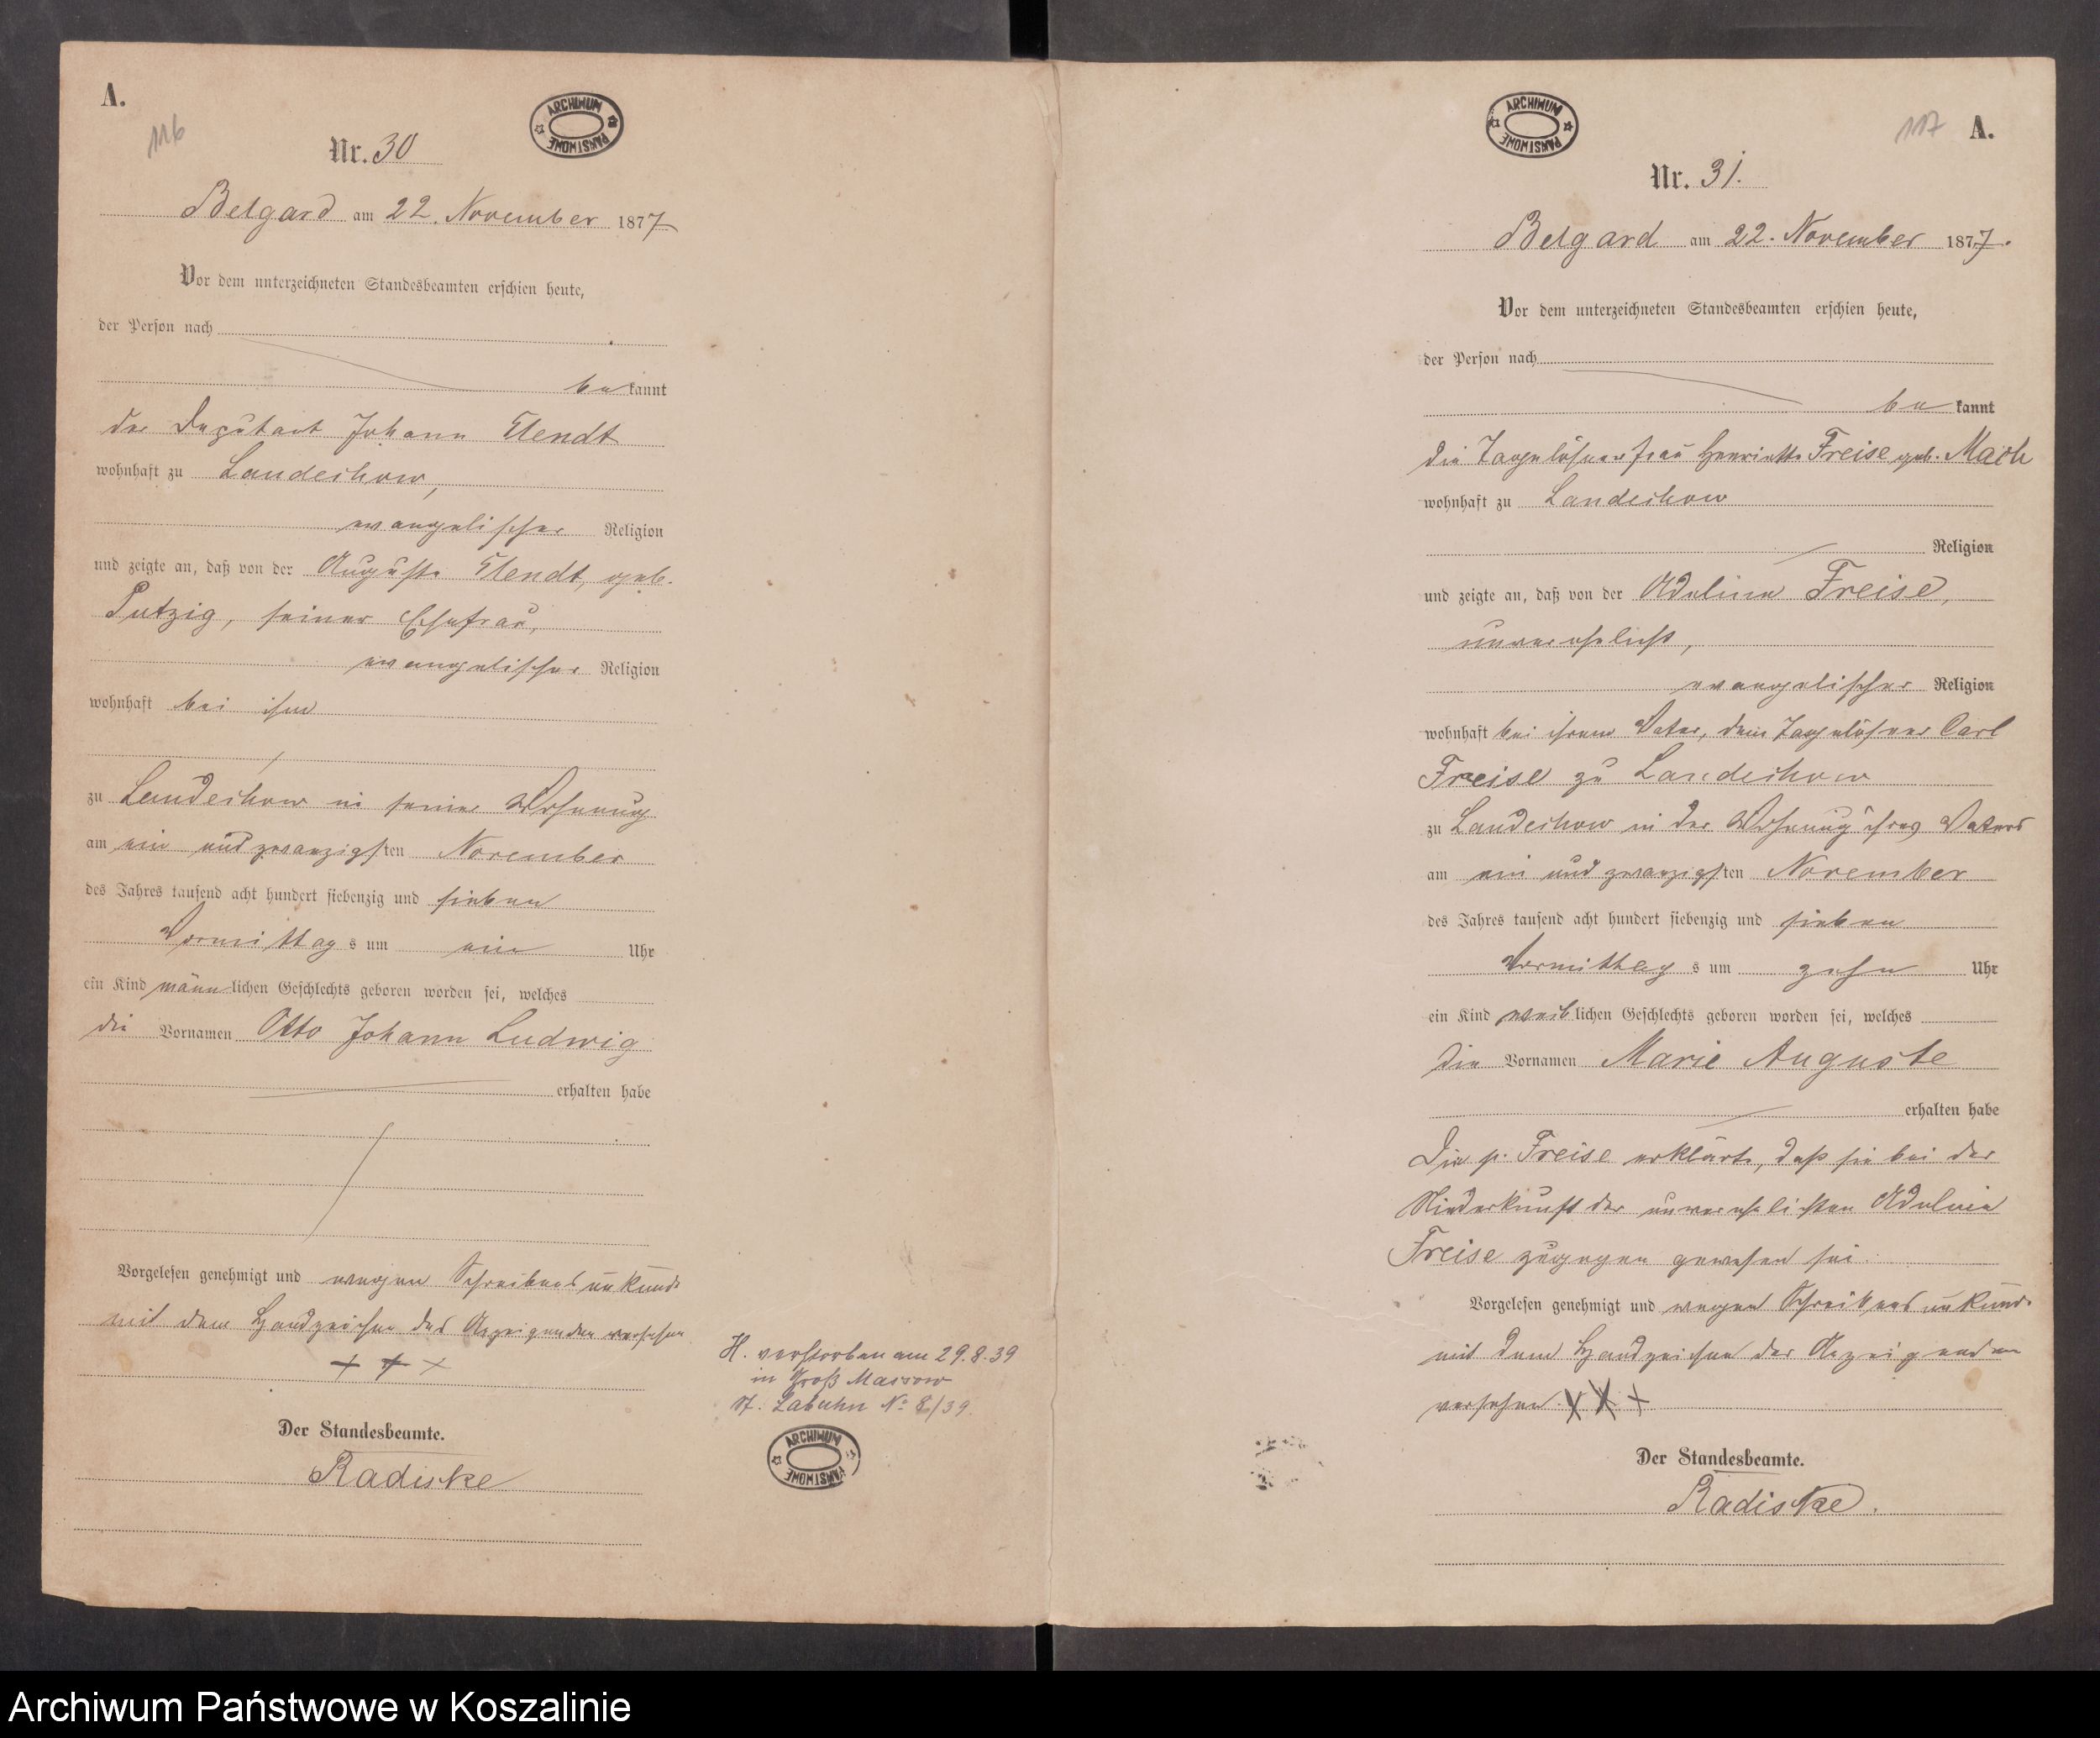 A.
116
ARCHIWUM PAŃSTWOWE
Nr. 30
Belgard am 22. November 1877
Vor dem unterzeichneten Standesbeamten erschien heute,
der Person nach
bekannt
der Deputant Johann Elendt
wohnhaft zu Landechow,
evangelischer Religion
und zeigte an, daß von der Auguste Elendt, geb.
Putzig, seiner Ehefrau,
evangelischer Religion
wohnhaft bei ihm
zu Landechow in seiner Wohnung
am ein und zwanzigsten November
des Jahres tausend acht hundert siebenzig und sieben
Vormittags um ein Uhr
ein Kind männlichen Geschlechts geboren worden sei, welches
die Vornamen Otto Johann Ludwig
erhalten habe
Vorgelesen genehmigt und wegen Schreibensunkunde
mit dem Handzeichen des Anzeigenden versehen
+ + +
Der Standesbeamte.
Radiske
H. verstorben am 29.8.39
in Groß Massow
St. Labuhn No 8/39.
ARCHIWUM PAŃSTWOWE
ARCHIWUM PAŃSTWOWE
117
A.
Nr. 31.
Belgard am 22. November 1877.
Vor dem unterzeichneten Standesbeamten erschien heute,
der Person nach
bekannt
die Tagelöhnerfrau Henriette Freise geb. Mach
wohnhaft zu Landechow
Religion
und zeigte an, daß von der Adeline Freise,
unverehelicht,
evangelischer Religion
wohnhaft bei ihrem Vater, dem Tagelöhner Carl
Freise zu Landechow
zu Landechow in der Wohnung ihres Vaters
am ein und zwanzigsten November
des Jahres tausend acht hundert siebenzig und sieben
Vormittags um zehn Uhr
ein Kind weiblichen Geschlechts geboren worden sei, welches
die Vornamen Marie Auguste
erhalten habe
Die p. Freise erklärte, daß sie bei der
Niederkunft der unverehelichten Adeline
Freise zugegen gewesen sei.
Vorgelesen genehmigt und wegen Schreibensunkunde
mit dem Handzeichen der Anzeigenden
versehen. X X +
Der Standesbeamte.
Radiske.
Archiwum Państwowe w Koszalinie